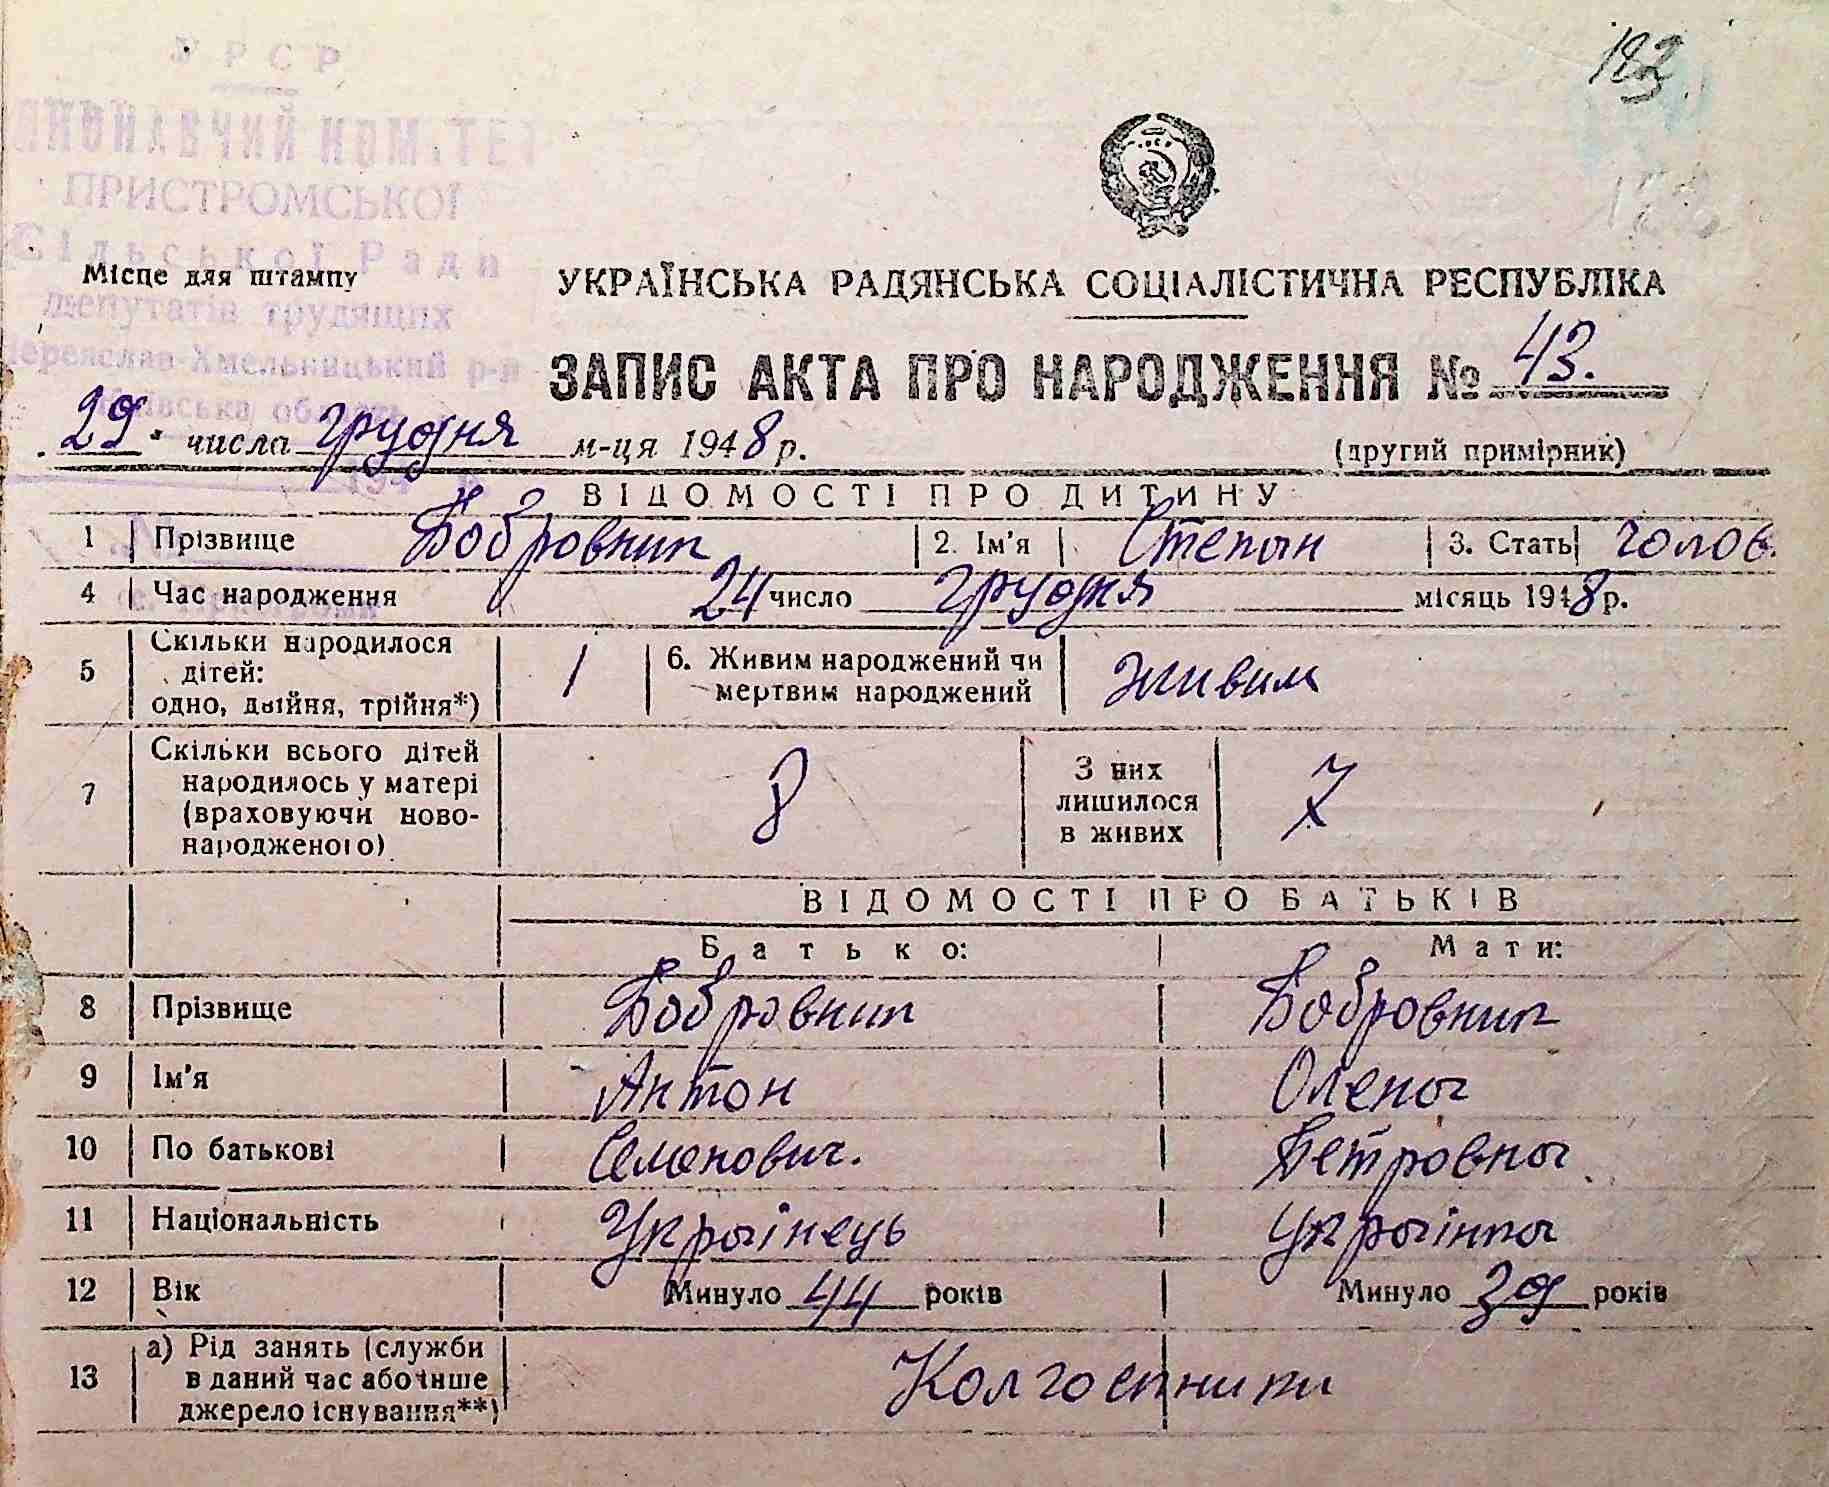 182.
УРСР
ВИКОНАВЧИЙ КОМІТЕТ
ПРИСТРОМСЬКОЇ
Сільської Ради
Місце для штампу
депутатів трудящих
Переяслав-Хмельницький р-н
Київська область
УКРАЇНСЬКА РАДЯНСЬКА СОЦІАЛІСТИЧНА РЕСПУБЛІКА
ЗАПИС АКТА ПРО НАРОДЖЕННЯ № 43.
29 числа грудня м-ця 1948 р.
(другий примірник)
ВІДОМОСТІ ПРО ДИТИНУ
1 Прізвище Бобровник 2. Ім'я Степан 3. Стать чолов.
4 Час народження 24 число грудня місяць 1948 р.
5 Скільки народилося дітей: одно, двійня, трійня*) 1 6. Живим народжений чи мертвим народжений живим
7 Скільки всього дітей народилось у матері (враховуючи новонародженого) 8 З них лишилося в живих 7
ВІДОМОСТІ ПРО БАТЬКІВ
Батько: Мати:
8 Прізвище Бобровник Бобровник
9 Ім'я Антон Олена
10 По батькові Семенович. Петровна
11 Національність Українець українка
12 Вік Минуло 44 років Минуло 39 років
13 а) Рід занять (служби в даний час або інше джерело існування**) Колгоспники